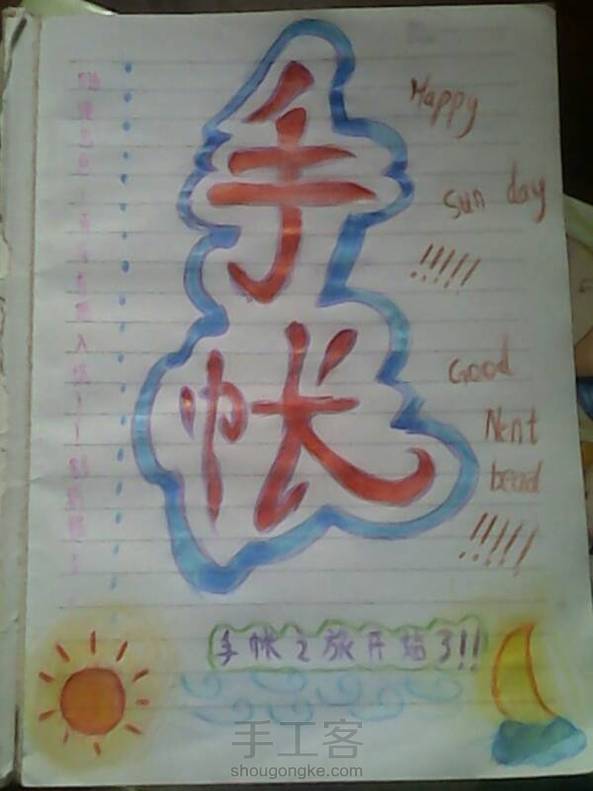 手
帐
Happy
sun day
!!!!!
Good
Nent
bead
!!!!!
手帐之旅开始了!!
手工客
shougongke.com